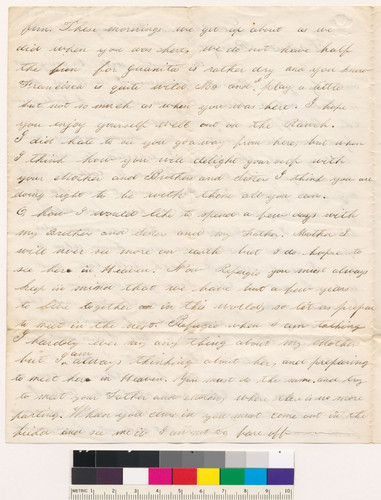 fun. These mornings we get up about as we
did when you was here, we do not have half
the fun for Juanita is rather dry and you know
Francisca is quite wild. Bo and I play a little
but not so much as when you was here. I hope
you enjoy yourself well out on the Ranch.
I did hate to see you go away from here, but when
I think how you will delight yourself with
your Mother and Brothers and Sister I think you are
doing right to be with them all you can.
O how I would like to spend a few days with
my Brother and Sister and my Father. Mother I
will never see more on earth but I do hope to
see her in Heaven. Now Refugio you must always
keep in mind that we have but a few years
to live together in this world, so let us prepar
to meet in the next. Refugio when I am talking
I hardly ever say any thing about my Mother
but I am always thinking about her, and preparing
to meet her in Heaven. You must do the same, and try
to meet your Father and where there is no more
parting. When you come in you must come out in the
and see me if I am not so fare off
METRIC 1 2 3 4 5 6 7 8 9 10